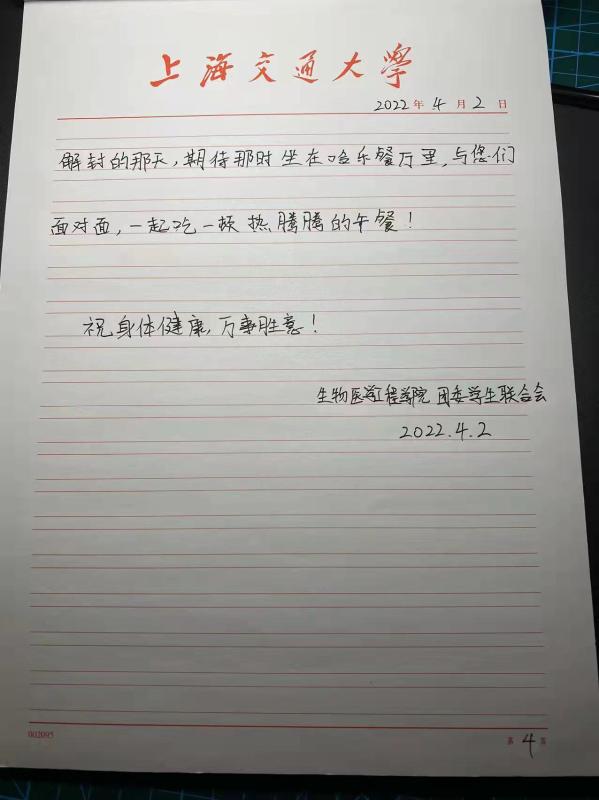 上海交通大學
2022年4月2日
解封的那天，期待那时坐在哈乐餐厅里，与您们
面对面，一起吃一顿热腾腾的午餐！
祝身体健康，万事胜意！
生物医学工程学院 团委学生联合会
2022.4.2
002095
第4页